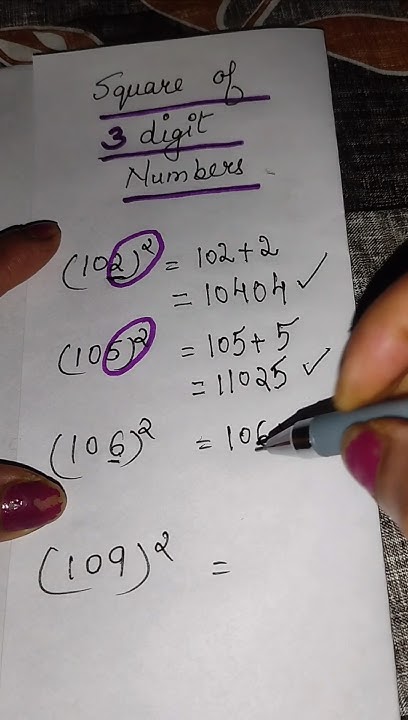 Square of
3 digit
Numbers
(102)² = 102+2
= 10404 ✓
(105)² = 105+5
= 11025 ✓
(106)² = 106
(109)² =